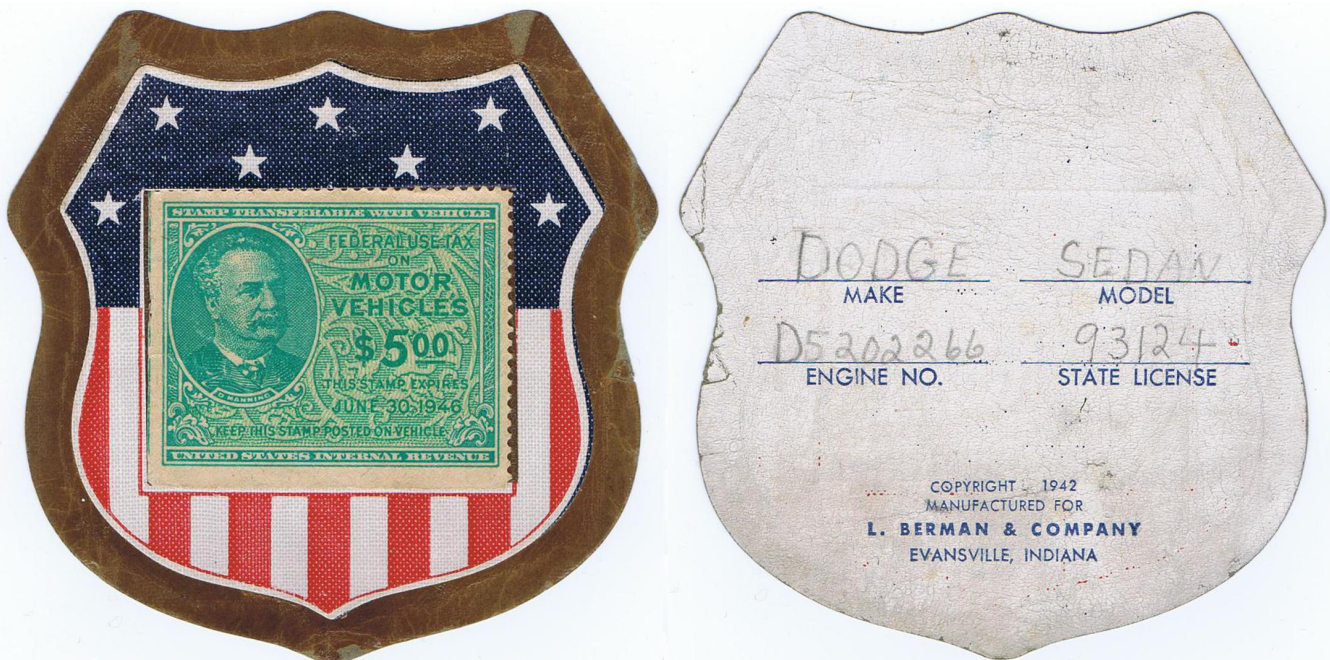 STAMP TRANSFERABLE WITH VEHICLE
FEDERAL USE TAX
ON
MOTOR
VEHICLES
$500
THIS STAMP EXPIRES
JUNE 30, 1946
D MANNING
KEEP THIS STAMP POSTED ON VEHICLE
UNITED STATES INTERNAL REVENUE
DODGE SEDAN
MAKE MODEL
D5202266 93124
ENGINE NO. STATE LICENSE
COPYRIGHT 1942
MANUFACTURED FOR
L. BERMAN & COMPANY
EVANSVILLE, INDIANA